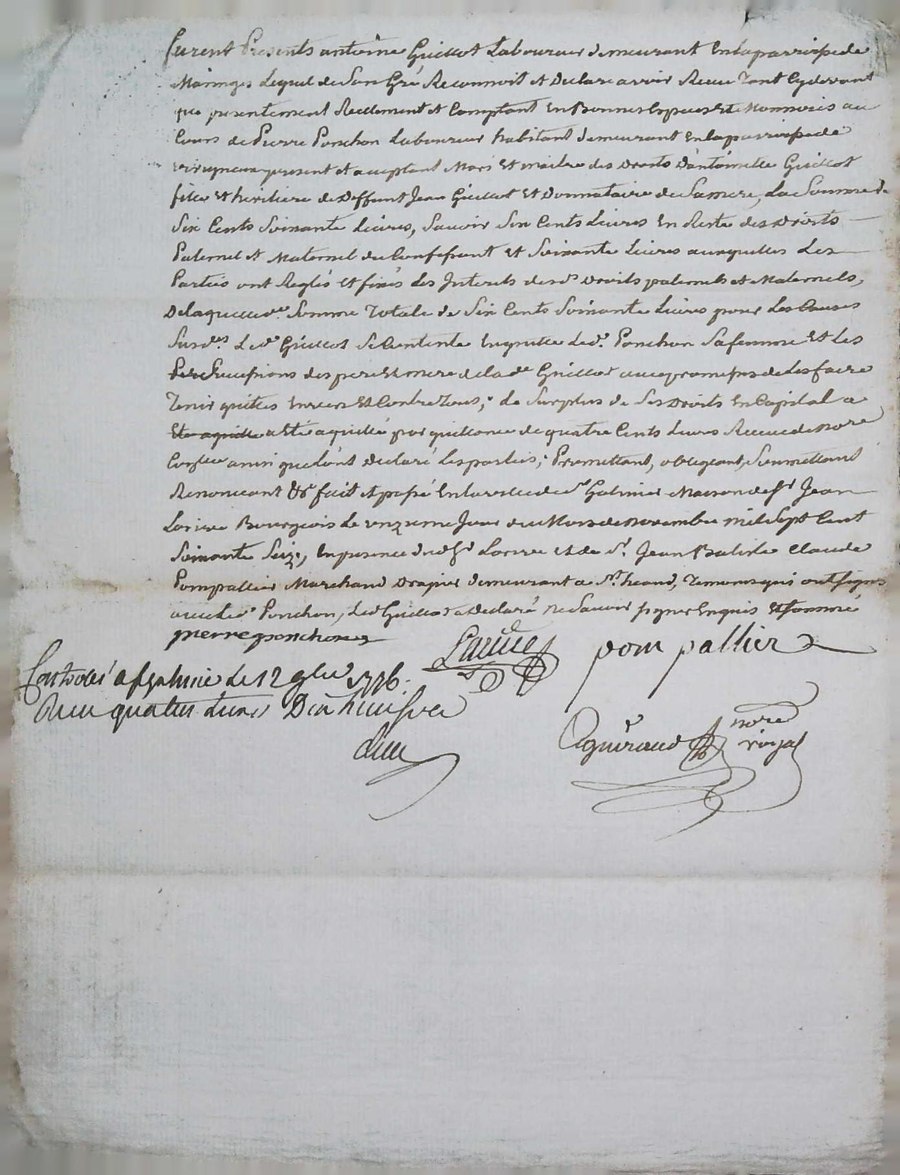 furent Presents antoine Guillot Laboureur demeurant En la parroisse de
Maringes Lequel de Son Gré Reconnoit et Declare avoir Receu Tant Cydevant
que presentement Reellement et Comptant En Bonnes Espèces Et Monnoies au
Cours de Pierre Ponchon Laboureur habitant demeurant En la parroisse de
virigneux present et acceptant Mari Et maitre des Droits D'antoinette Guillot
fille et héritiere de Deffunt Jean Guillot Et Donnataire de Sa mere, La Somme de
Six Cents Soixante Livres, Savoir Six Cents Livres En Reste des Droits
Paternel et Maternel du Confessant et Soixante Livres auxquelles Les
Parties ont Reglés et fixés Les Interets desds Droits paternels et Maternels,
De laquelle de. Somme Totale de Six Cents Soixante Livres pour Les Causes
Susdes. Led. Guillot Se Contente En quitte Led. Ponchon Sa femme Et Les
Successions des pere Et mere de lade Guillot avec promesse de Les faire
Tenir quittes Envers Et Contre Tous, Le Surplus de Ses Droits En Capital a
Eté aquitté par quittance de quatre Cents Livres Receue de Nore
ainsi que L'ont Declaré Les parties, Promettant, obligeant, Soumettant
Renonceant &c fait et passé En la ville de St Galmier Maison de Sr Jean
Larive Bourgeois Le onzieme Jour du Mois de Novembre mil Sept Cent
Soixante Seize, En presence dud Sr Larive et de Sr. Jean Batiste Claude
Pompallier Marchand Drapier demeurant a St. heand, Temoins qui ont signé
avec Led Ponchon, Led Guillot a Declaré ne Savoir signer Enquis Et Sommé
pierre ponchon
Larive pom pallier
Controlé a St galmier le 12 9bre 1776.
Reçu quatre livres Dix huit sols
Aguiraud nore royal